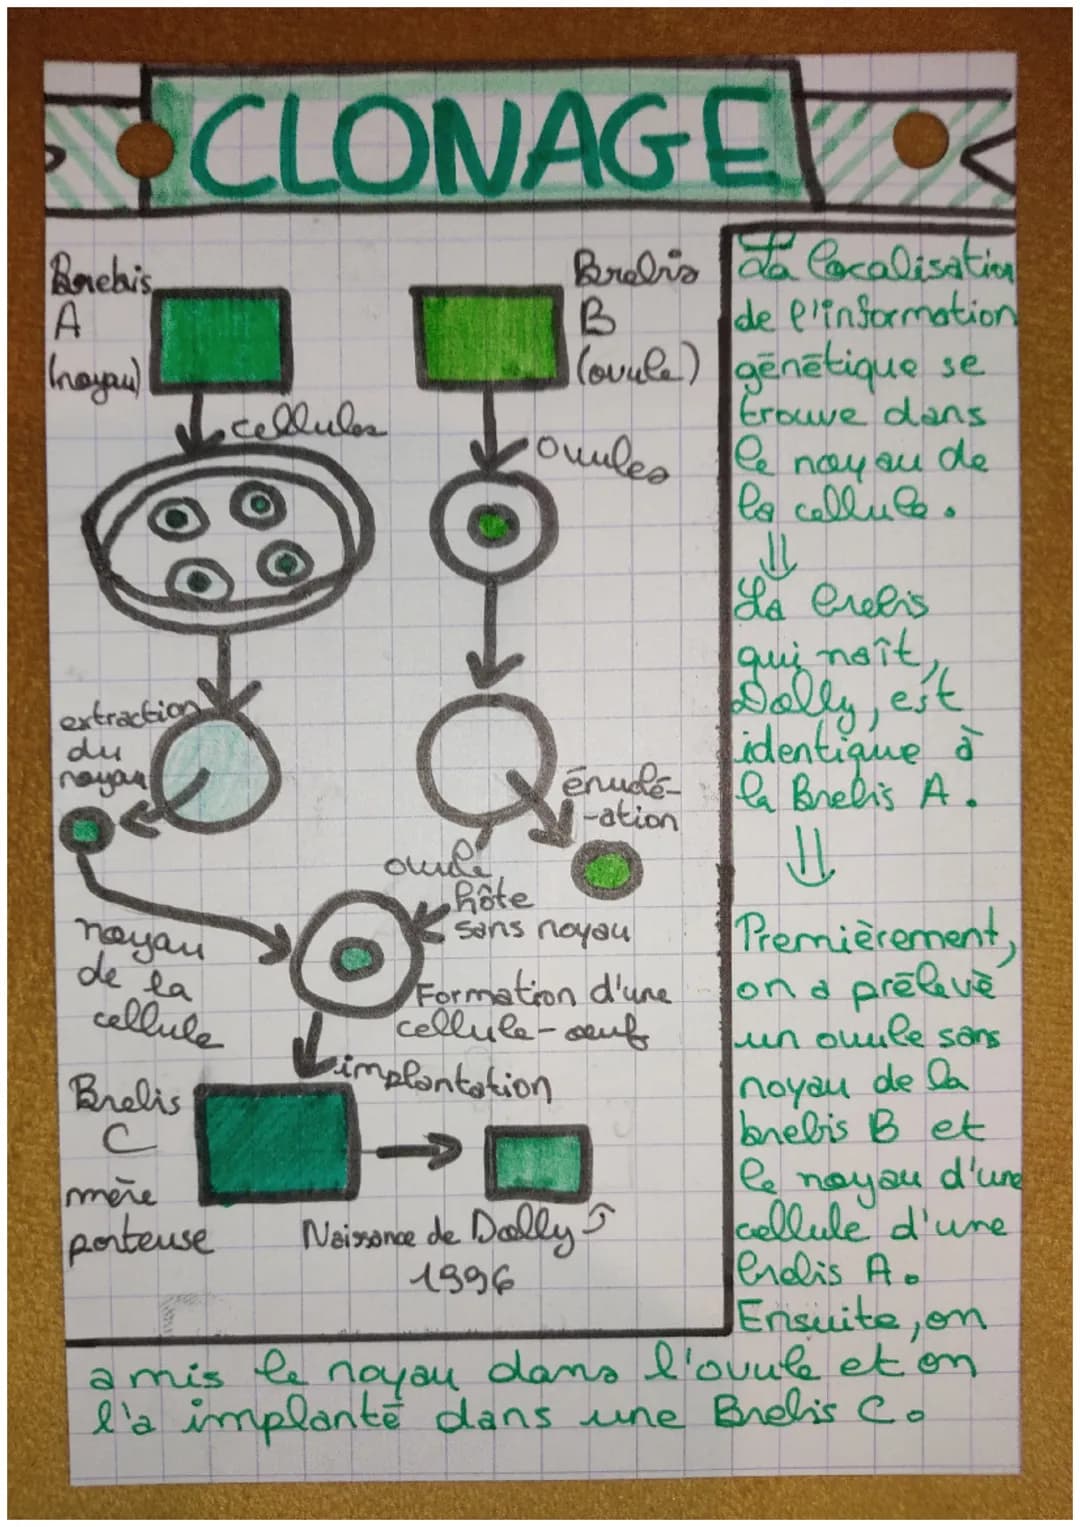 CLONAGE
Brebis
A
(noyau)
cellules
Brebis
B
(ovule)
ovules
extraction
du
noyau
énuclé-
-ation
ovule
hôte
sans noyau
noyau
de la
cellule
Formation d'une
cellule-œuf
implantation
Brebis
C
mère
porteuse
Naissance de Dolly
1996
La localisation
de l'information
génétique se
trouve dans
le noyau de
la cellule.
La brebis
qui naît,
Dolly, est
identique à
la Brebis A.
Premièrement,
on a prélevé
un ovule sans
noyau de la
brebis B et
le noyau d'une
cellule d'une
brebis A.
Ensuite, on
a mis le noyau dans l'ovule et on
l'a implanté dans une Brebis C.